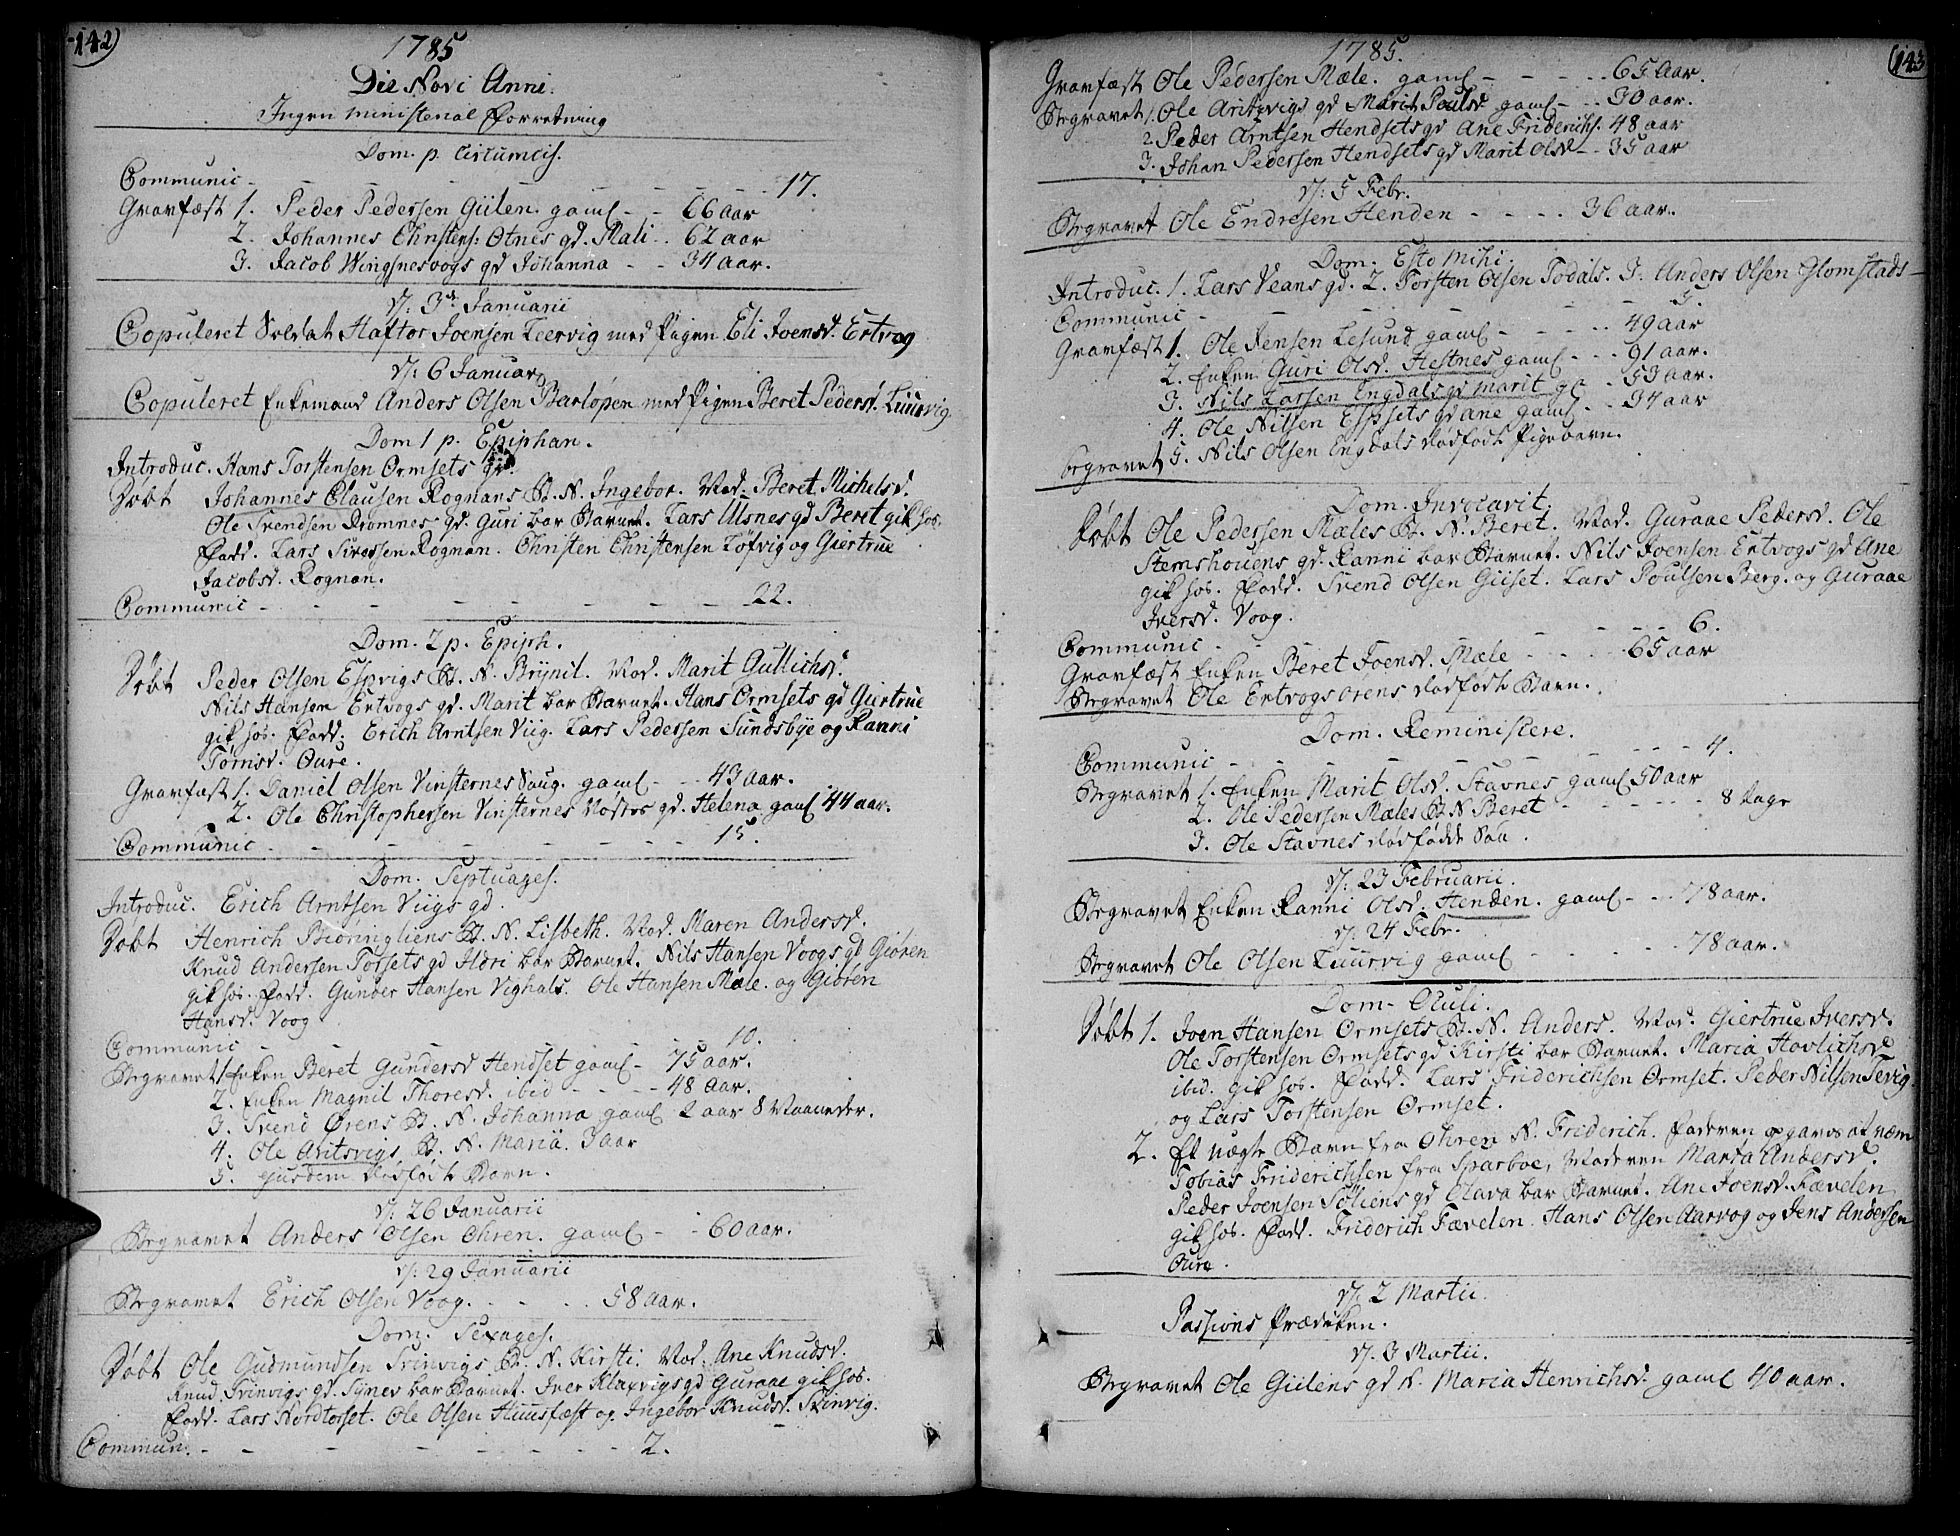 142
1785
Die Novi Anni.
Ingen ministerial Forretning
Dom. p. Circumcis.
Communic - - - - - - - - - 17.
Gravfæst 1. Peder Pedersen Giilen. gaml - - 66 Aar
2. Johannes Christens: Otnes gd. Mali .. 62 aar
3. Jacob Wingsnesvogs gd Johanna - - 34 aar.
d: 3die Januarii
Copuleret Soldat Haftor Joensen Leervig med Pigen Eli Joensd. Ertvog
d: 6 Januar
Copuleret Enkemand Anders Olsen Barløpen med Pigen Beret Pedersd. Luurvig
Dom 1 p. Epiphan.
Introduc. Hans Torstensen Ormsets gd.
Døbt Johannes Clausen Rognans B. N. Ingebor. Mod. Beret Michelsd.
Ole Svendsen Romnes gd. Guri bar Barnet. Lars Ulsnes gd Beret gik hos.
Fadd. Lars Sivertsen Rognan. Christen Christensen Løfvig og Giertrue
Jacobsd. Rognan.
Communic - - - - - - - - 22.
Dom. 2 p. Epiph.
Døbt Peder Olsen Espvigs B. N. Brynil. Mod. Marit Gullichsd.
Nils Hansen Ertvogs gd. Marit bar Barnet. Hans Ormsets gd Giertrue
gik hos. Fadd. Erich Arntsen Viig. Lars Pedersen Sundsbye og Ranni
Tørrisd. Oure.
Gravfæst 1. Daniel Olsen Vinsternes Saug. gaml - - 43 aar.
2. Ole Christophersen Vinsternes Nøstes gd. Helena gaml 44 aar.
Communic - - - - - - - - 15.
Dom. Septuages.
Introduc. Erich Arntsen Viigs gd.
Døbt Henrich Biøringliens B. N. Lisbeth. Mod. Maren Andersd.
Knud Andersen Torsets gd Ildri bar Barnet. Nils Hansen Voogs gd Giøren
gik hos. Fadd. Gunder Hansen Vighals. Ole Hansen Mæle. og Giøren
Hansd. Voog
Communic - - - - - - - - 10.
Begravet 1. Enken Beret Gundersd Hendset gaml - 75 aar.
2. Enken Magnil Thoresd. ibid - - - - 48 aar.
3. Svend Ørens B. N. Johanna gaml 2 aar 8 Maaneder.
4. Ole Aritsvigs B. N. Maria. 3 aar
5. ejusdem dødfødt Barn.
d: 26 Januarii
Begravet Anders Olsen Ohren. gaml - - 60 aar.
d: 29 Januarii
Begravet Erich Olsen Voog. - - - - 58 aar.
Dom. Sexages.
Døbt Ole Gudmundsen Trinvigs B. N. Kirsti. Mod. Ane Knudsd.
Knud Trinvigs gd. Synev bar Barnet. Iver Klaxvigs gd Guraae gik hos.
Fadd. Lars Nordtorset. Ole Olsen Huusfæst og Ingebor Knudsd. Trinvig.
Commun. - - - - - - - - 2.
143
1785.
Gravfæst Ole Pedersen Mæle. gaml - - - .. 65 Aar.
Begravet 1. Ole Aritsvigs gd Marit Poulsd gaml - .. 30 aar.
2. Peder Arntsen Hendsets gd Ane Friderichs. 48 aar
3. Johan Pedersen Hendsets gd Marit Olsd - - 35 aar
d: 5 Febr.
Begravet Ole Endresen Henden - - - - 36 aar.
Dom. Esto Mihi.
Introduc. 1. Lars Veans gd. 2. Torsten Olsen Todals. 3. Anders Olsen Glomstads -
Communic - - - - - - - 5.
Gravfæst 1. Ole Jensen Lesund gaml - - - .. 49 aar
2. Enken Guri Olsd. Hestnes gaml - .. 91 aar.
3. Nils Larsen Engdals gd Marit ga - 53 aar.
4. Ole Nilsen Espsets gd ane gaml - .. 34 aar
begravet 5. Nils Olsen Engdals dødfødt Pigebarn.
Dom. Invocavit.
Døbt Ole Pedersen Mæles B. N. Beret. Mod. Guraae Pedersd. Ole
Stemshougens gd. Ranni bar Barnet. Nils Joensen Ertvogs gd Ane
gik hos. Fadd. Svend Olsen Giiset. Lars Poulsen Berg. og Guraae
Iversd. Voog.
Communic - - - - - - - 6.
Gravfæst Enken Beret Joensd. Mæle - - - - 65 aar
Begravet Ole Ertvogs Ørens dødfødt Barn.
Dom. Reministere.
Communic - - - - - - - 4.
Begravet 1. Enken Marit Olsd. Stavnes gaml 50 aar
2. Ole Pedersen Mæles B. N Beret - - - - - - 8 Dage
3. Ole Stavnes dødfødde Søn.
d: 23 Februarii.
Begravet Enken Ranni Olsd. Henden. gaml - - .. 78 aar.
d: 24 Febr.
Begravet Ole Olsen Luurvig gaml - - - - 78 aar.
Dom. Oculi.
Døbt 1. Joen Hansen Ormsets B. N. Anders. Mod. Giertrue Iversd.
Ole Torstensen Ormsets gd Kirsti bar Barnet. Maria Hovlichsd
ibid. gik hos. Fadd. Lars Friderichsen Ormset. Peder Nilsen Tevig
og Lars Torstensen Ormset.
2. Et uægte Barn fra Ohren N. Friderich. Faderen opgaves at være
Tobias Friderichsen fra Sparboe, Moderen Maria Andersd.
Peder Joensen Solliens gd Olava bar Barnet. Ane Joensd. Fævelen
gik hos. Fadd. Friderich Fævelen. Hans Olsen Aarvog og Jens Andersen
Oure.
d: 2 Martii.
Passions Prædiken.
d: 3 Martii.
Begravet Ole Giilens gd N. Maria Henrichsd. gaml 40 aar.